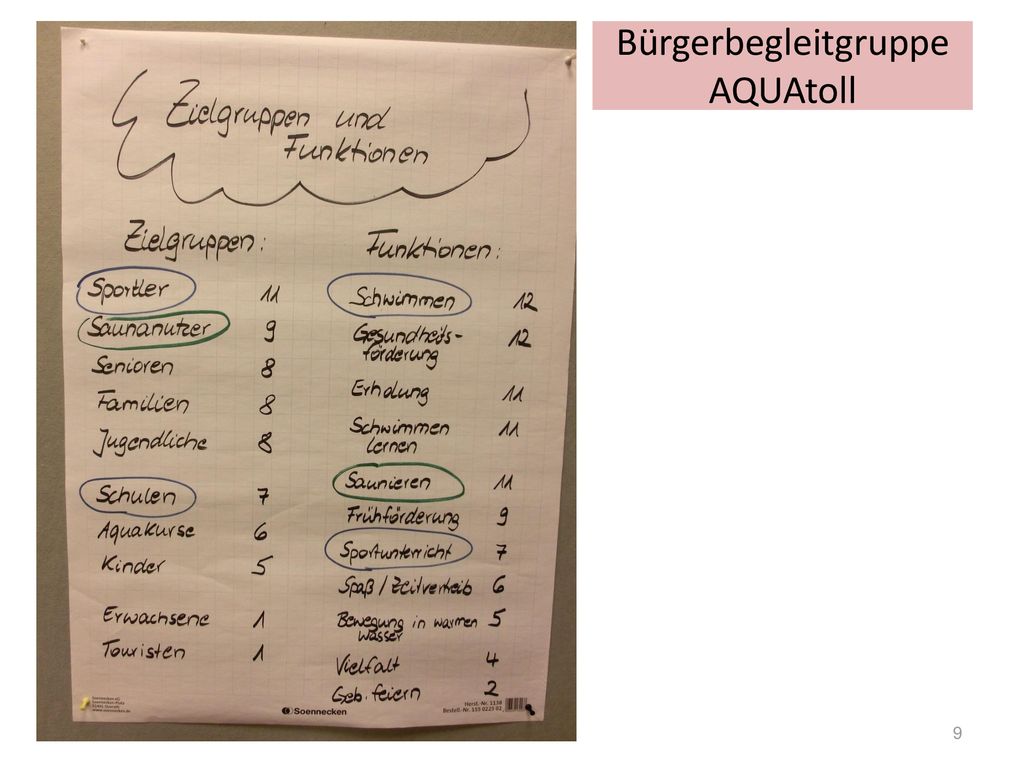 Bürgerbegleitgruppe
AQUAtoll
Zielgruppen und
Funktionen
Zielgruppen:
Sportler 11
Saunanutzer 9
Senioren 8
Familien 8
Jugendliche 8
Schulen 7
Aquakurse 6
Kinder 5
Erwachsene 1
Touristen 1
Funktionen:
Schwimmen 12
Gesundheits-
förderung 12
Erholung 11
Schwimmen
lernen 11
Saunieren 11
Frühförderung 9
Sportunterricht 7
Spaß / Zeitvertreib 6
Bewegung in warmen
wasser 5
Vielfalt 4
Geb. feiern 2
Soennecken
Herst.-Nr. 1138
9